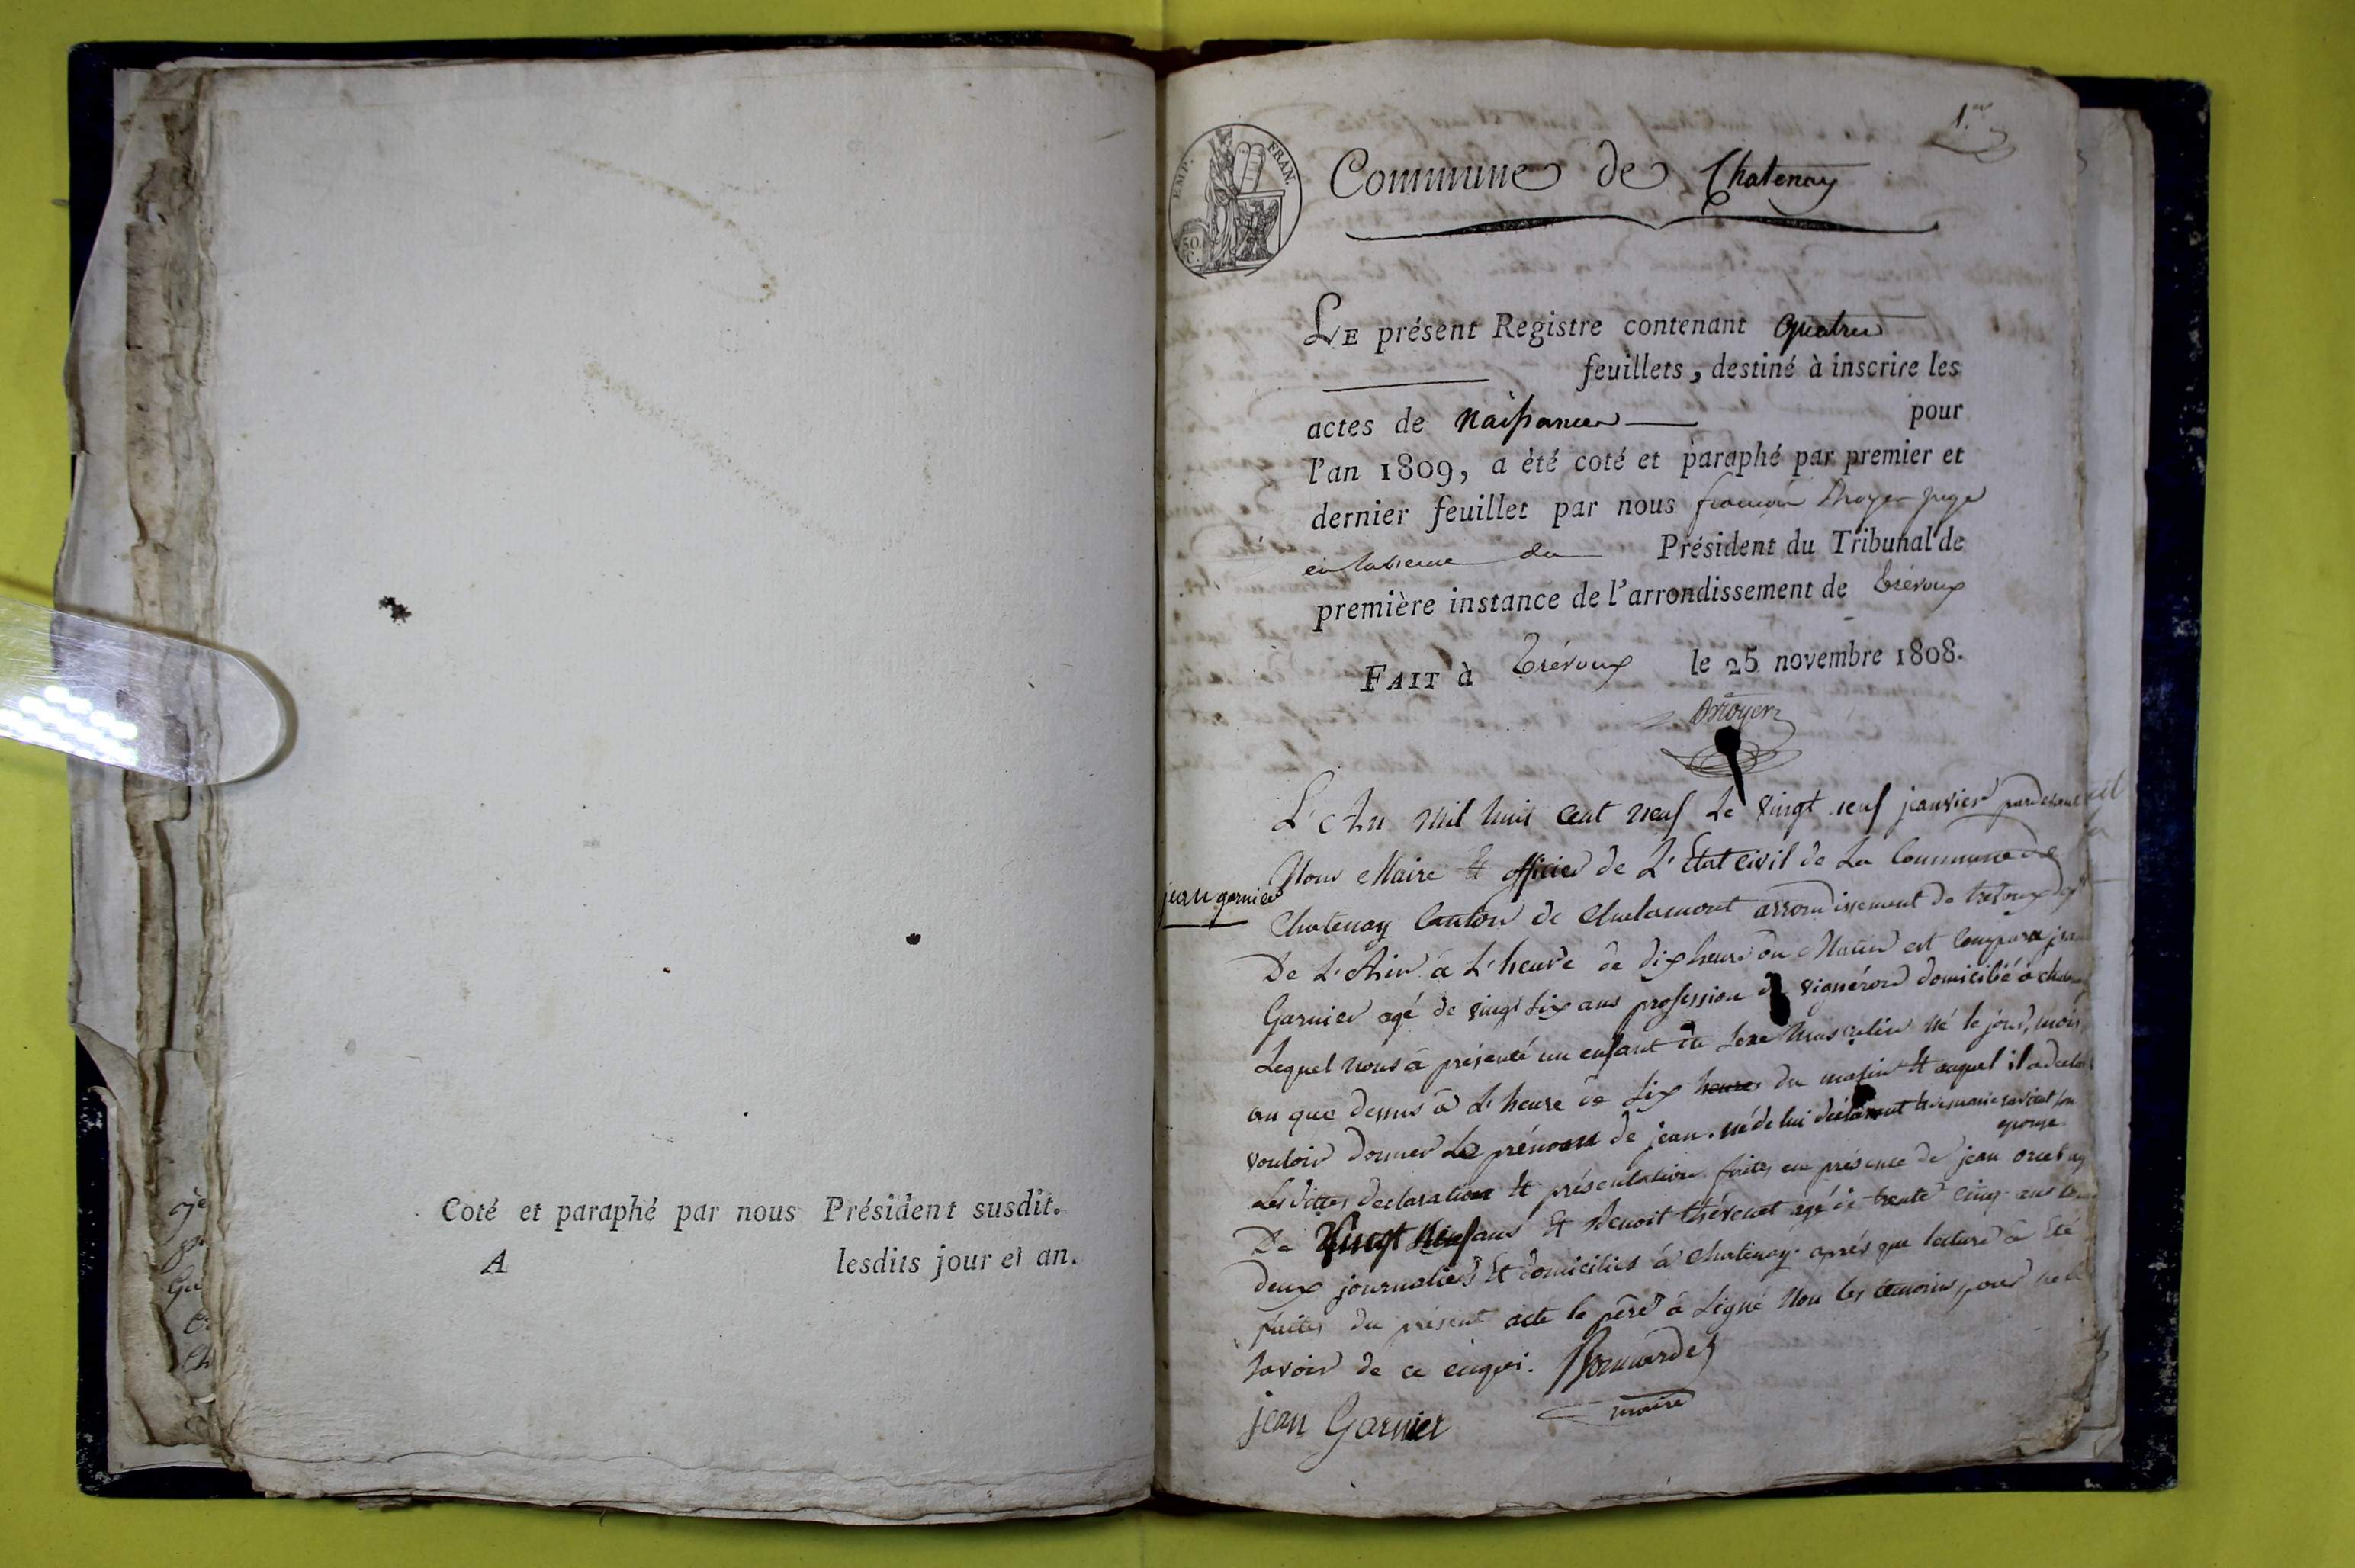 Coté et paraphé par nous Président susdit.
A lesdits jour et an.
1.er
EMP. FRAN.
50 C.
Commune de Chatenay
LE présent Registre contenant quatre
feuillets, destiné à inscrire les
actes de naissance pour
l'an 1809, a été coté et paraphé par premier et
dernier feuillet par nous françois juge
en du Président du Tribunal de
première instance de l'arrondissement de trévoux
FAIT à trévoux le 25 novembre 1808.
jean garnier
L'An mil huit cent neuf Le vingt neuf janvier pardevant
Nous Maire Et officier de L'Etat civil de La Commune de
Chatenay Canton de Chalamont arrondissement de trevoux
De L'Ain à L'heure de dix heure du Matin est comparu jean
Garnier agé de vingt six ans profession de vignéron domicilié à
Lequel nous à présenté un enfant du sexe Masculin né le jour, mois
an que dessus à L'heure de six heures du matin Et auquel il a declaré
vouloir donner Le prénom de jean. né de lui déclarant Et de marie son
epouse.
Les dittes declaration Et présentation faites en présence de jean
De vingt neuf ans Et Benoit thévenet agé de trente cinq ans tous
deux journaliers Et domiciliés à Chatenay. après que lecture à Eté
faites du présent acte le père à signé Non les temoins pour ne le
savoir de ce enquis. Bonnardel
maire
jean Garnier